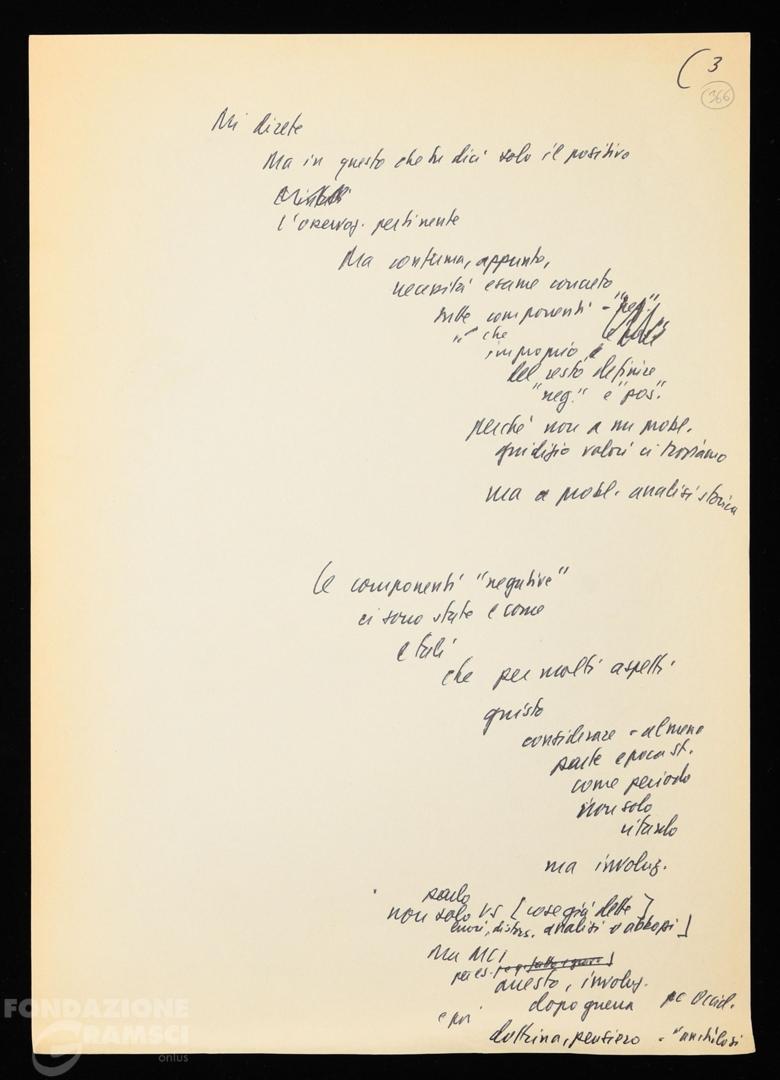 ( 3
366
Mi direte
Ma in questo che tu dici solo il positivo
L'osservaz. pertinente
Ma conferma, appunto,
necessità esame concreto
tutte componenti - "neg."
che
improprio è
del resto definire
"neg." e "pos".
perché non a un probl.
giudizio valori ci troviamo
ma a probl. analisi storica
Le componenti "negative"
ci sono state e come
e tali
che per molti aspetti
giusto
considerare - almeno
parte epoca st.
come periodo
non solo
ritardo
ma involuz.
parlo
non solo VS [cose già dette]
errori, distors. analisi o abbozzi]
Ma MCI
per es.
questo, involuz.
dopoguerra pc Occid.
e poi
dottrina, pensiero - "anchilosi
FONDAZIONE
GRAMSCI
onlus